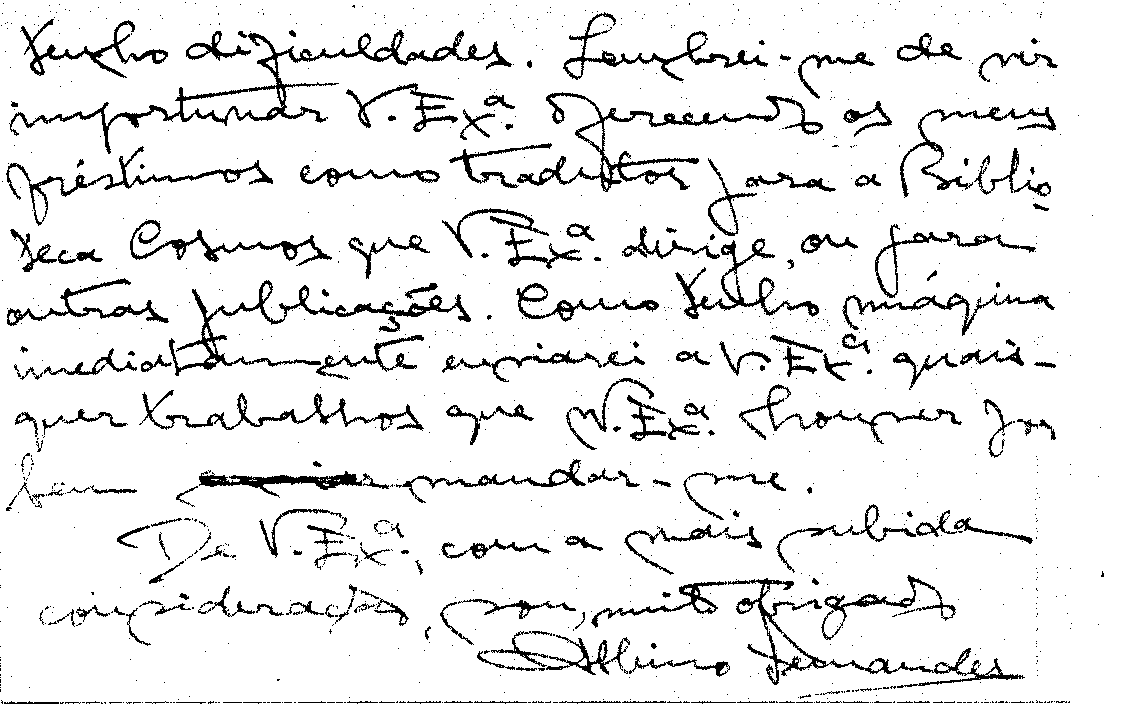 tenho dificuldades. Lembrei-me de vir
importunar V. Exª. oferecendo os meus
préstimos como tradutor para a Biblio
teca Cosmos que V. Exª. dirige, ou para
outras publicações. Como tenho máquina
imediatamente enviarei a V. Exª. quais-
quer trabalhos que V. Exª. houver por
bem mandar-me.
De V. Exª., com a mais subida
consideração, sou, muito obrigado
Albino Fernandes